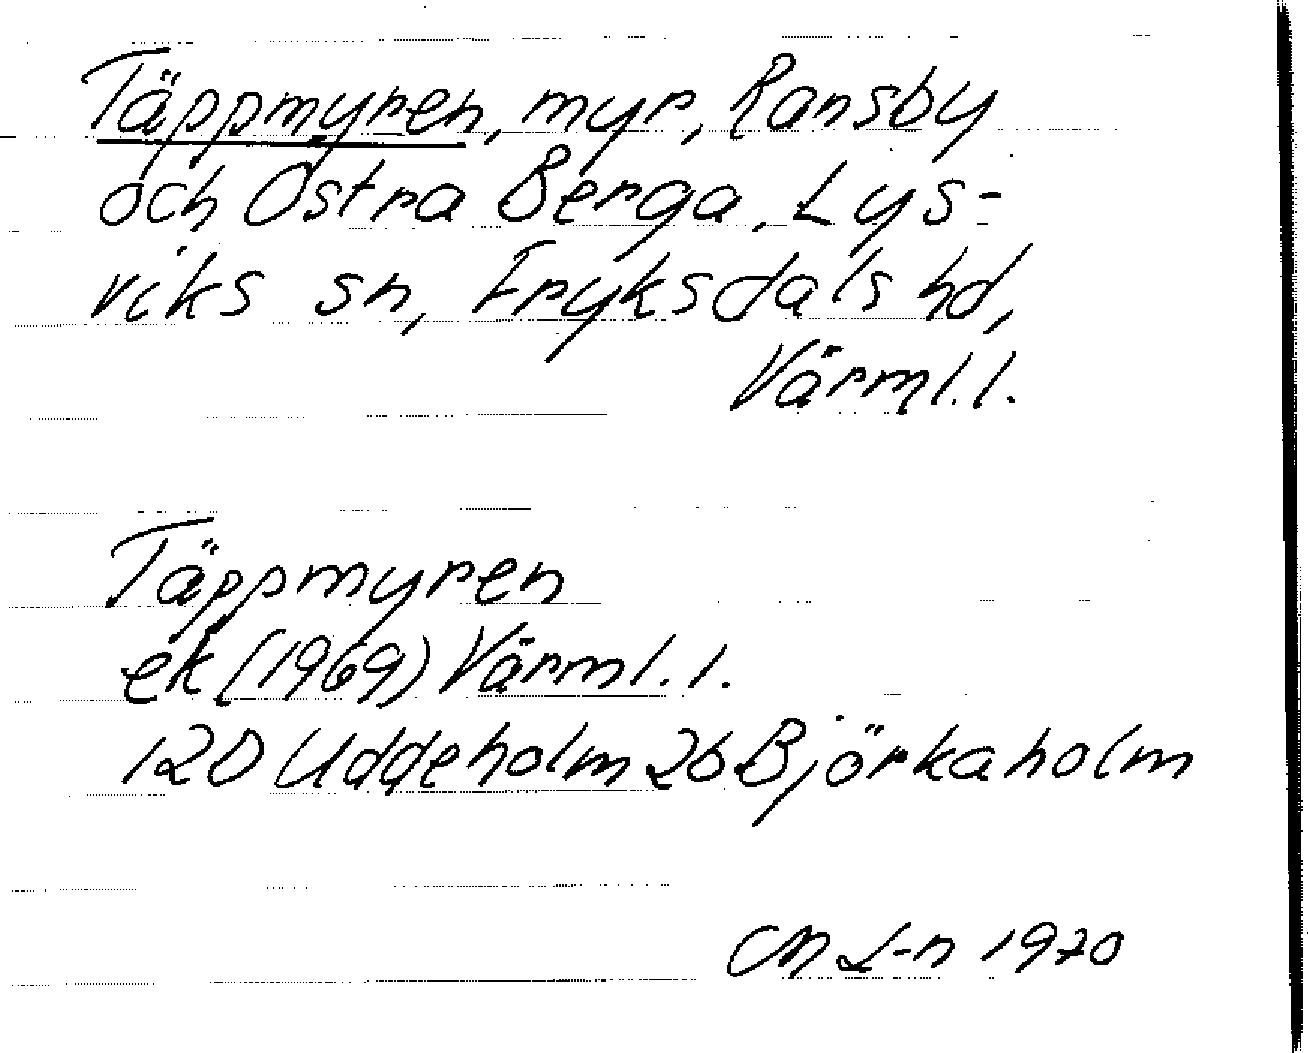 Täppmyren, myr, Ransby
och Östra Berga, Lys-
viks sn, Fryksdals hd,
Värml.l.
Täppmyren
ek (1969) Värml.l.
12D Uddeholm 2b Björkaholm
CM L-n 1970